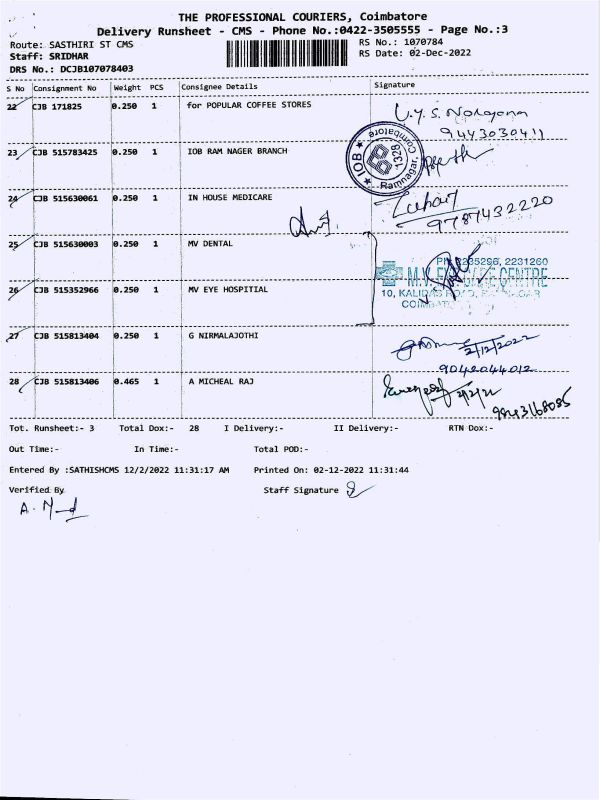 THE PROFESSIONAL COURIERS, Coimbatore
Delivery Runsheet - CMS - Phone No.:0422-3505555 - Page No.:3
Route: SASTHIRI ST CMS RS No.: 1070784
Staff: SRIDHAR RS Date: 02-Dec-2022
DRS No.: DCJB107078403
S No Consignment No Weight PCS Consignee Details Signature
22 CJB 171825 0.250 1 for POPULAR COFFEE STORES
9443030411
23 CJB 515783425 0.250 1 IOB RAM NAGER BRANCH
IOB Coimbatore 1328 Ramnagar,
24 CJB 515630061 0.250 1 IN HOUSE MEDICARE
9787432220
25 CJB 515630003 0.250 1 MV DENTAL
2235296, 2231260
M.V. EYE CARE CENTRE
26 CJB 515352966 0.250 1 MV EYE HOSPITIAL
10, KALIDAS ROAD,
27 CJB 515813404 0.250 1 G NIRMALAJOTHI
2/12/2022
9042044012
28 CJB 515813406 0.465 1 A MICHEAL RAJ
2/12/22
Tot. Runsheet:- 3 Total Dox:- 28 I Delivery:- II Delivery:- RTN Dox:-
Out Time:- In Time:- Total POD:-
Entered By :SATHISHCMS 12/2/2022 11:31:17 AM Printed On: 02-12-2022 11:31:44
Verified By Staff Signature